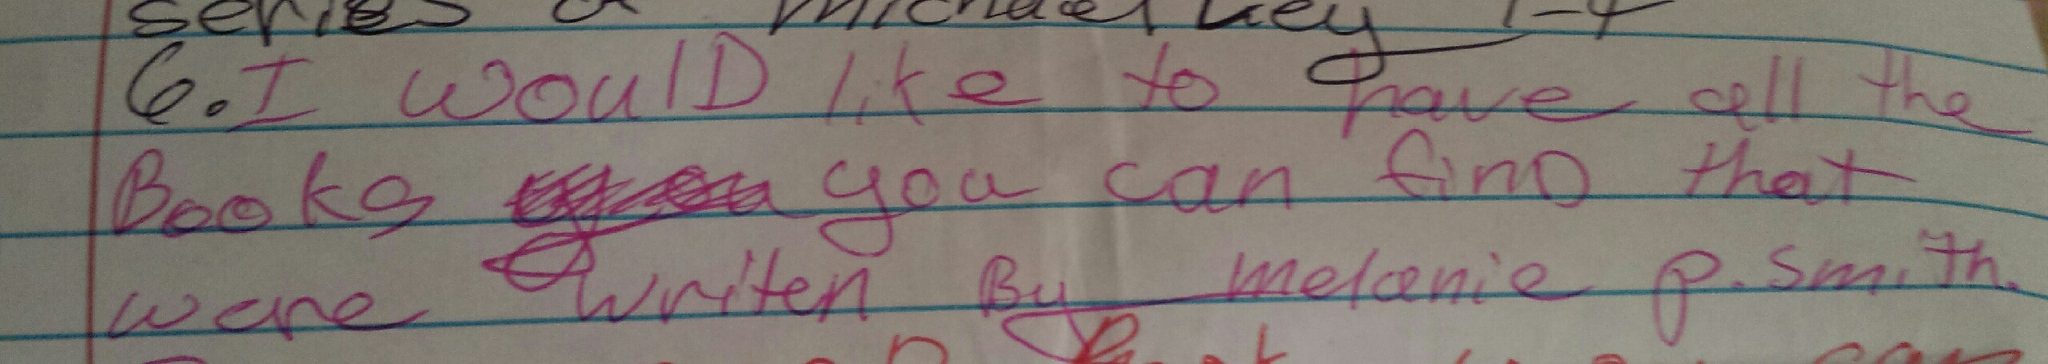 series a michael key 1-4
6. I woulD like to have all the
Books you can finD that
were writen By melanie p. smith.